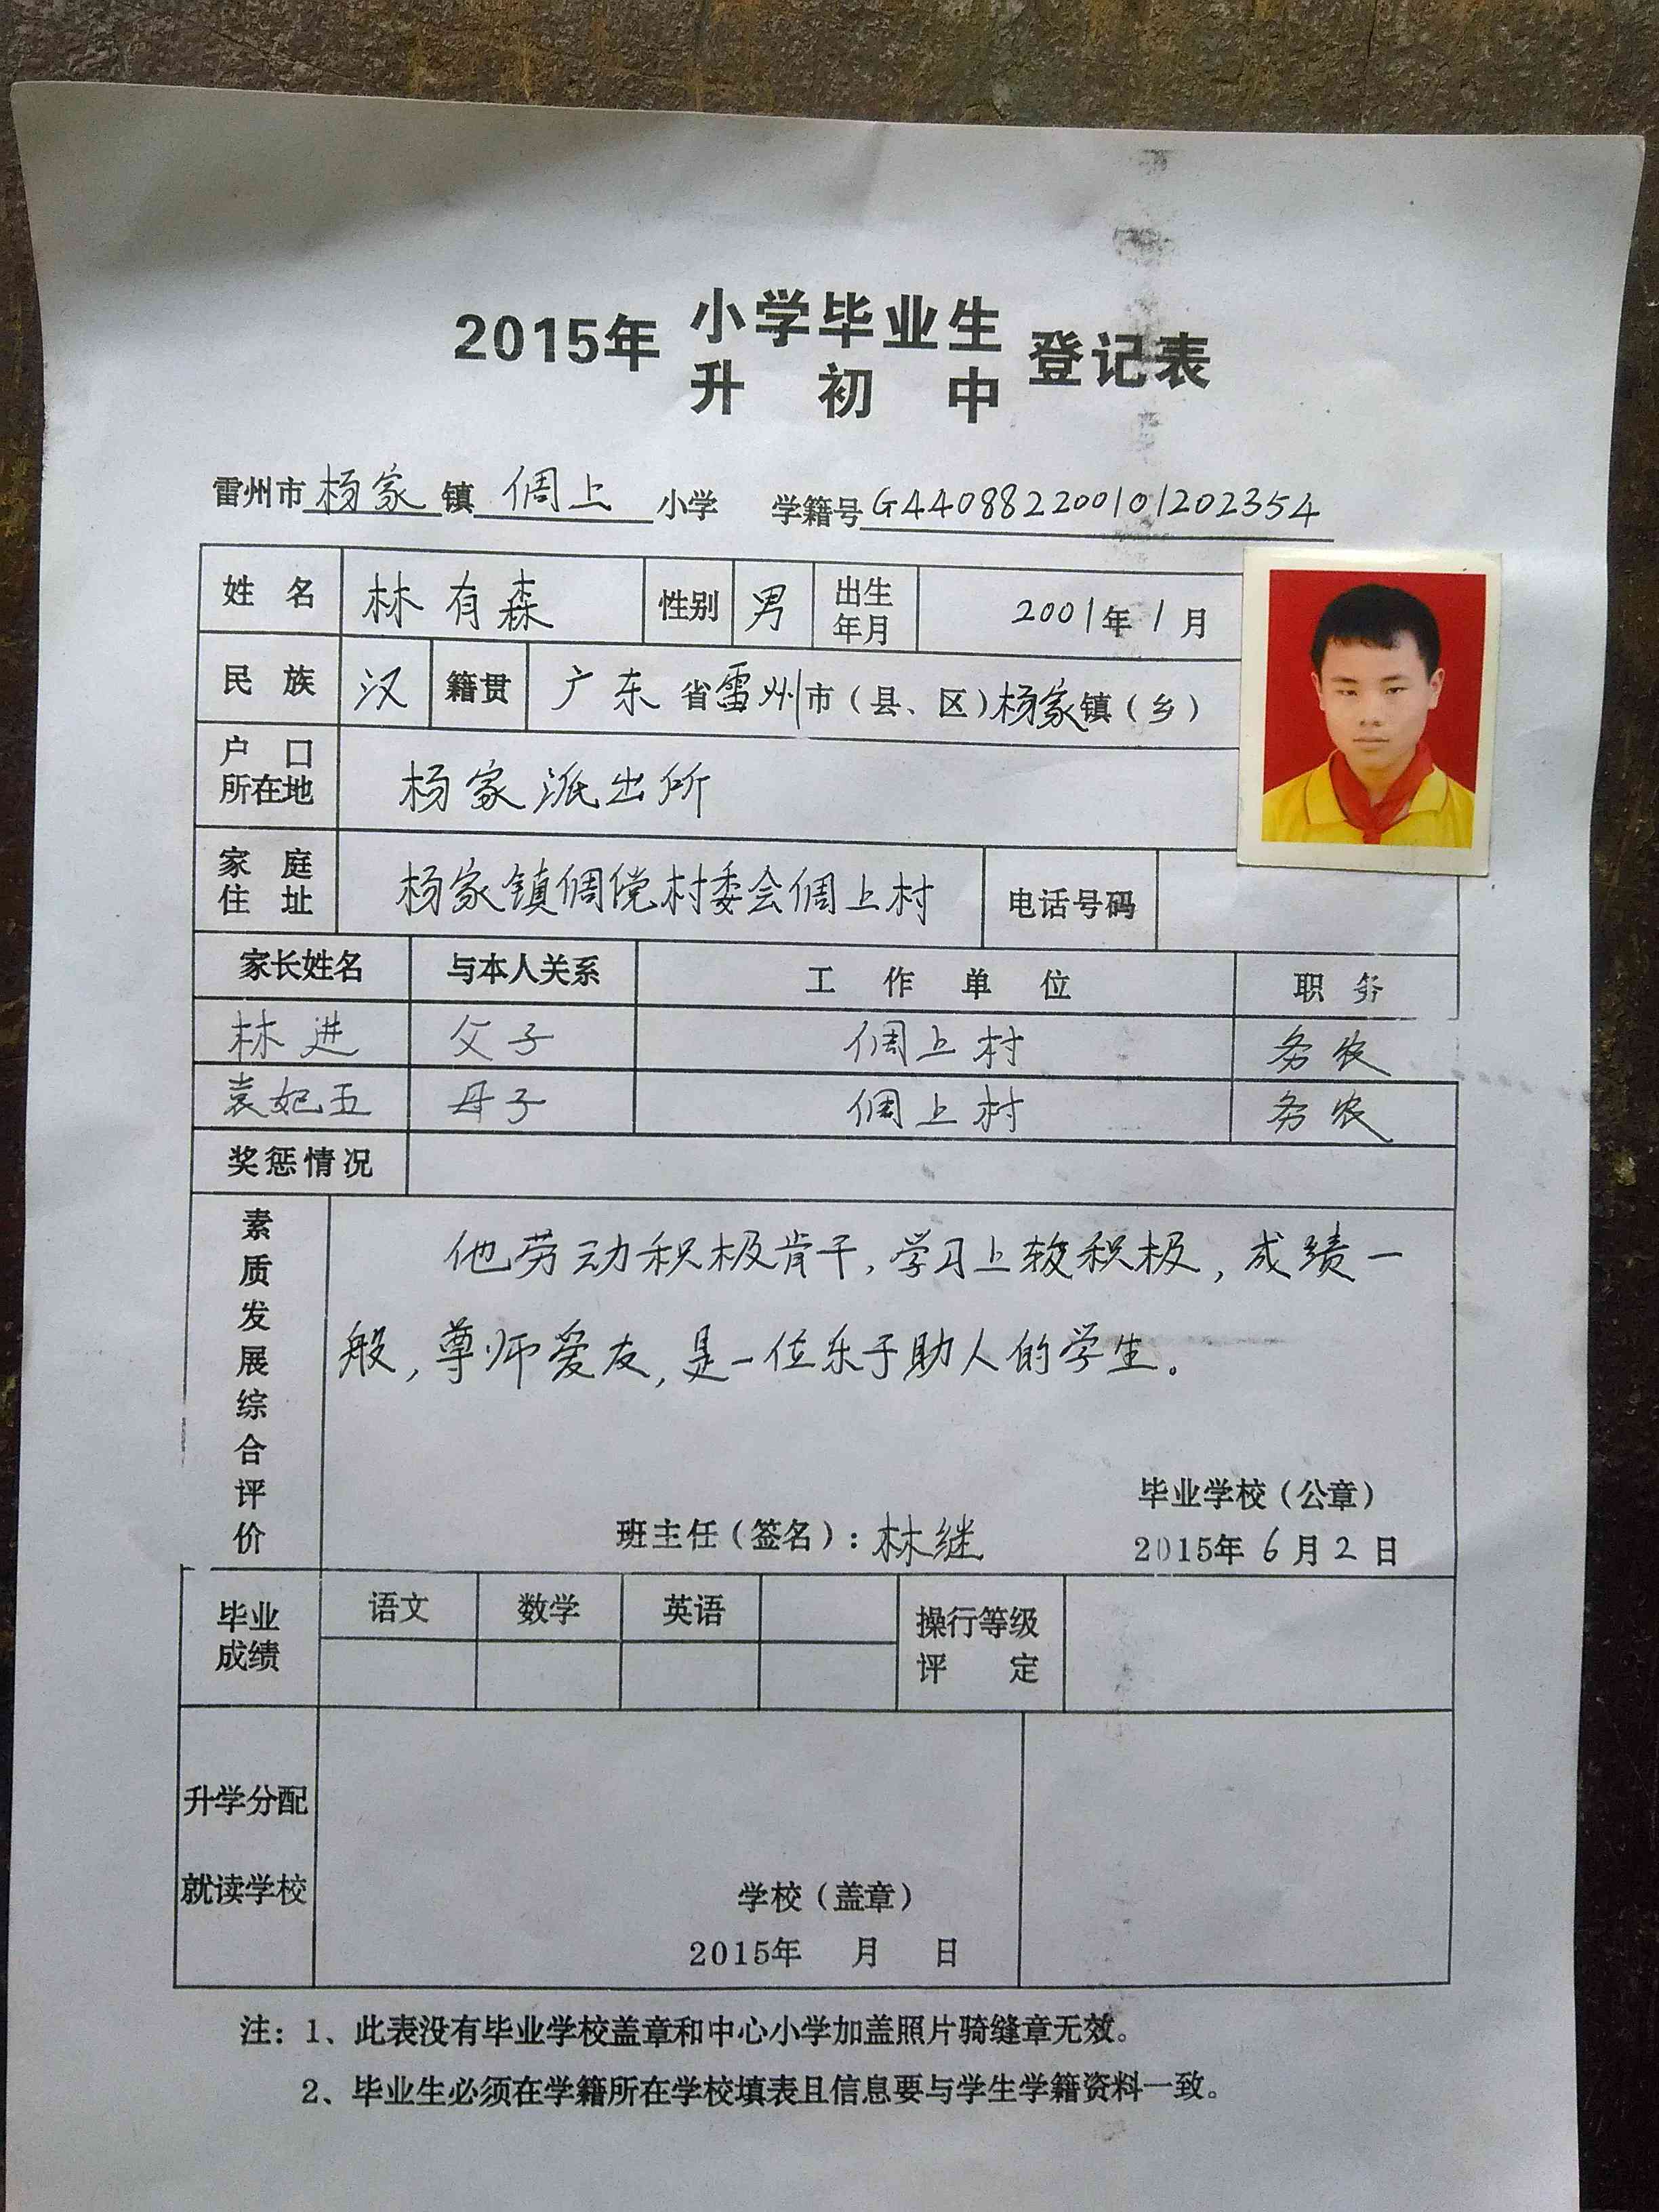 2015年 小学毕业生 登记表
升初中
雷州市杨家镇倜上小学 学籍号G440882200101202354
姓名 林有森 性别 男 出生年月 2001年1月
民族 汉 籍贯 广东省雷州市（县、区）杨家镇（乡）
户口所在地 杨家派出所
家庭住址 杨家镇倜党村委会倜上村 电话号码
家长姓名 与本人关系 工作单位 职务
林进 父子 倜上村 务农
袁妃五 母子 倜上村 务农
奖惩情况
素质发展综合评价
他劳动积极肯干,学习上较积极,成绩一
般,尊师爱友,是一位乐于助人的学生。
毕业学校（公章）
班主任（签名）：林继 2015年6月2日
毕业成绩 语文 数学 英语 操行等级评定
升学分配
就读学校
学校（盖章）
2015年 月 日
注：1、此表没有毕业学校盖章和中心小学加盖照片骑缝章无效。
2、毕业生必须在学籍所在学校填表且信息要与学生学籍资料一致。